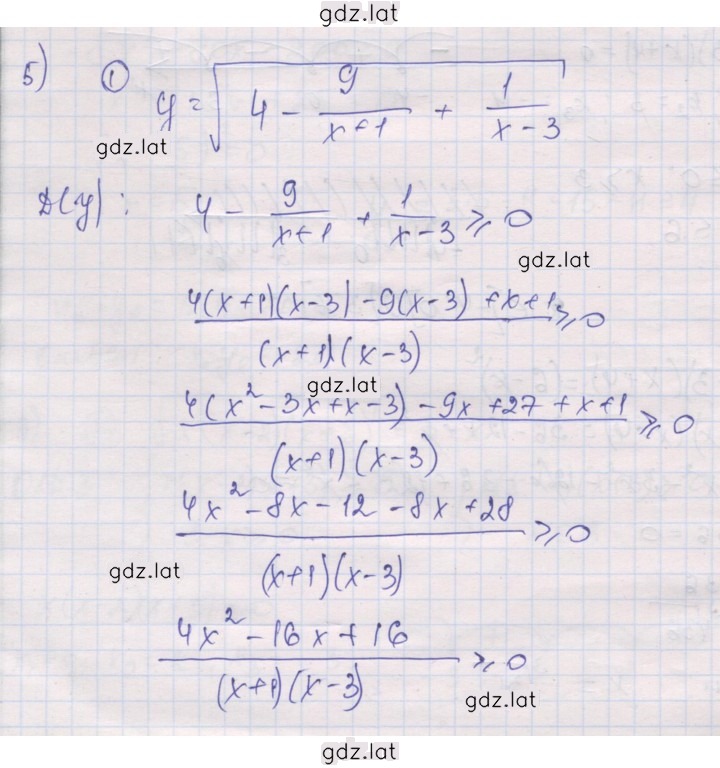 gdz.lat
5) ① y = √(4 - 9/(x+1) + 1/(x-3))
gdz.lat
D(y): 4 - 9/(x+1) + 1/(x-3) ≥ 0
gdz.lat
(4(x+1)(x-3) - 9(x-3) + x+1)/((x+1)(x-3)) ≥ 0
gdz.lat
(4(x² - 3x + x - 3) - 9x + 27 + x + 1)/((x+1)(x-3)) ≥ 0
(4x² - 8x - 12 - 8x + 28)/((x+1)(x-3)) ≥ 0
gdz.lat
(4x² - 16x + 16)/((x+1)(x-3)) ≥ 0
gdz.lat
gdz.lat